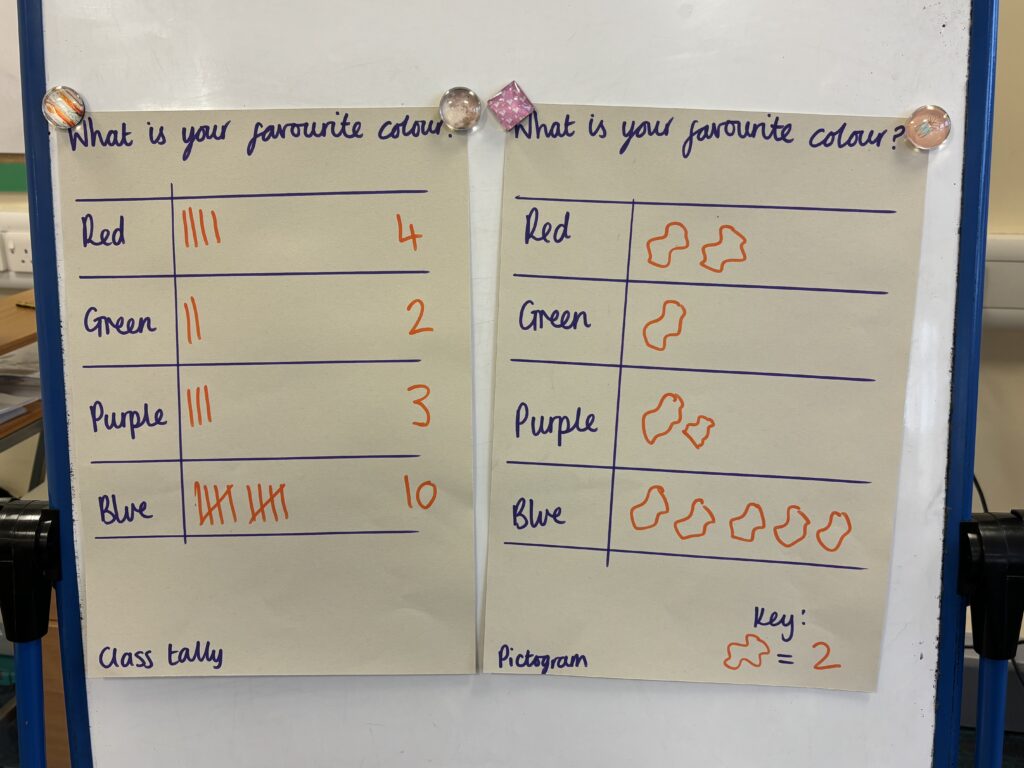 What is your favourite colour?
Red 4
Green 2
Purple 3
Blue 10
Class tally
What is your favourite colour?
Red
Green
Purple
Blue
Key:
= 2
Pictogram